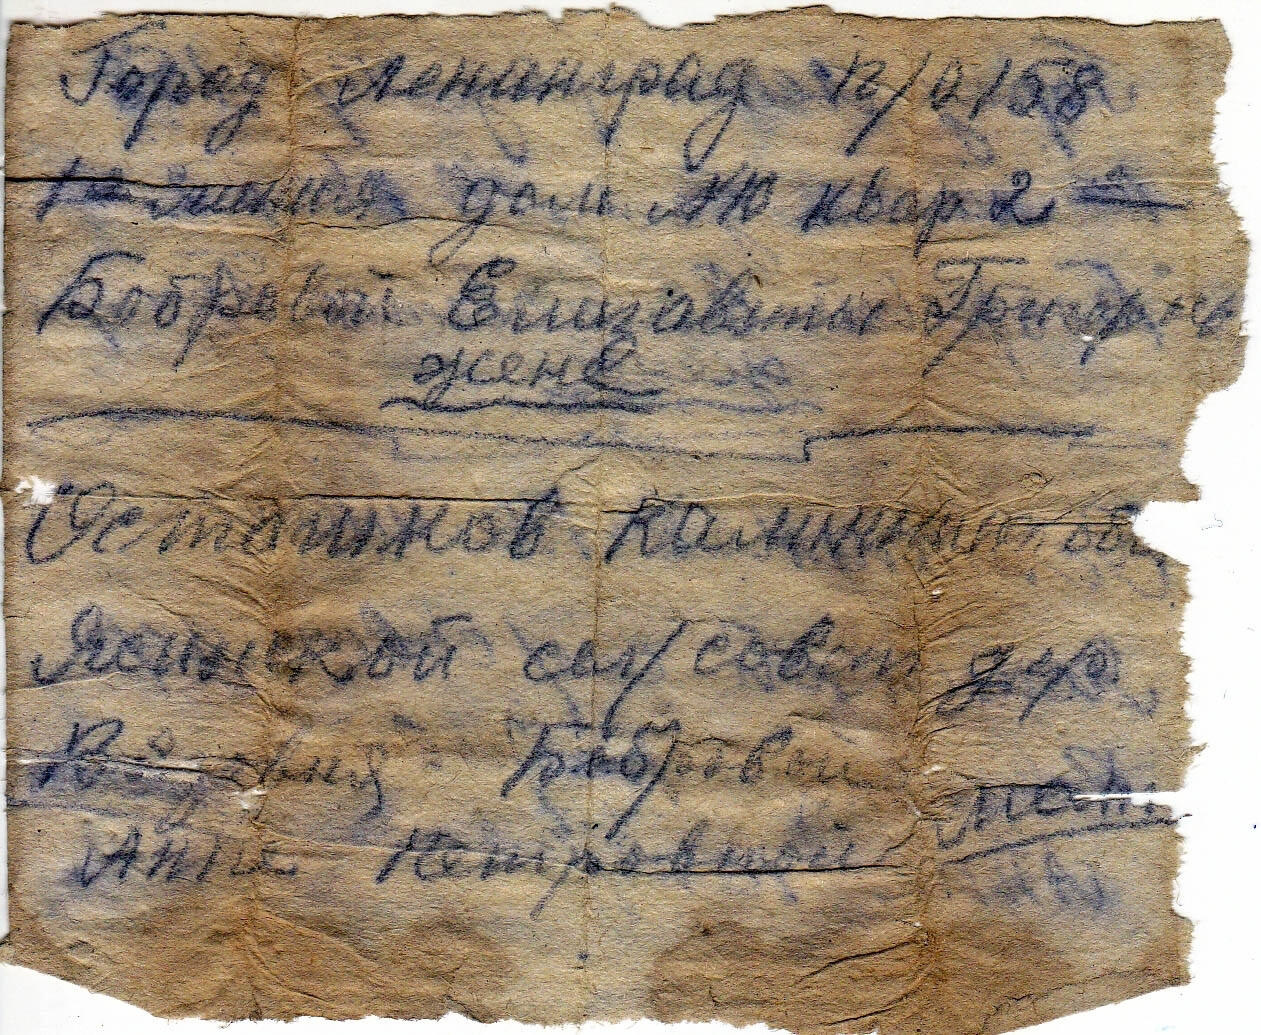 Город Ленинград п/о 158
линия дом № 10 квар 2
Бобровой Елизаветы Григорьев
жене
Осташков Калининской об
сел/совет дер
Бобровой
мать
Анне Петровной